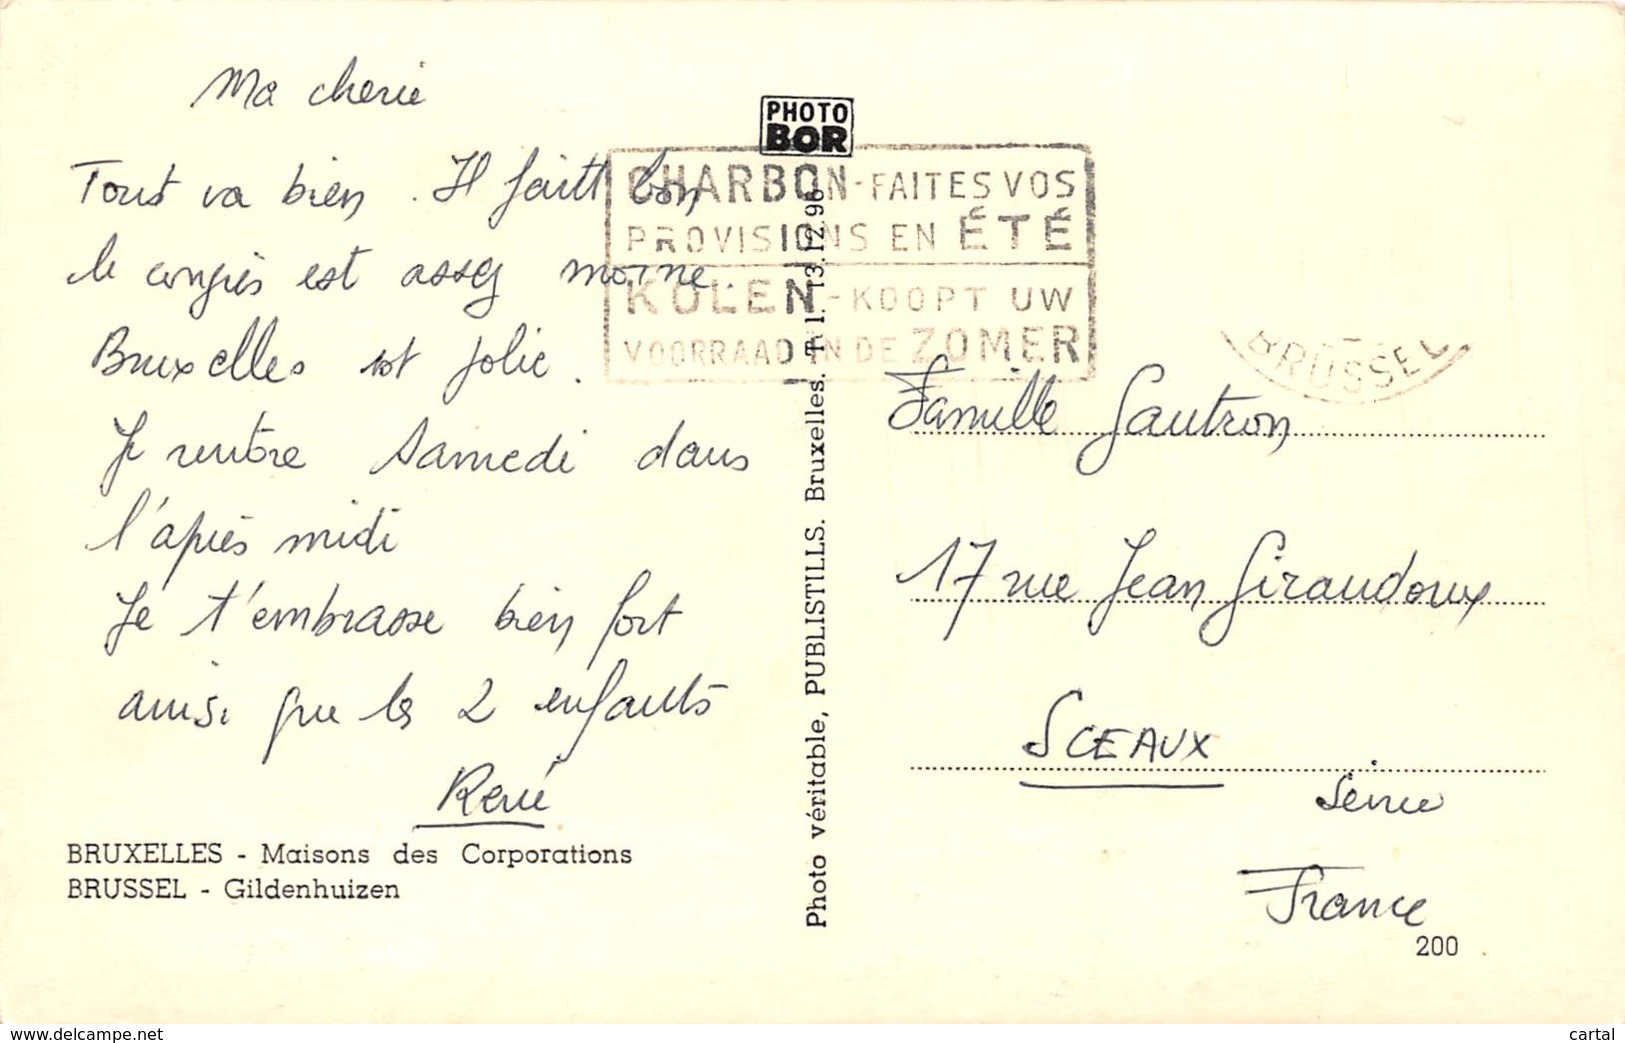 Ma cherie
Tout va bien. Il faitt bon
le congrès est assez morne.
Bruxelles est jolie.
Je rentre samedi dans
l'après midi
Je t'embrasse bien fort
ainsi que les 2 enfants
René
BRUXELLES - Maisons des Corporations
BRUSSEL - Gildenhuizen
PHOTO
BOR
CHARBON-FAITES VOS
PROVISIONS EN ÉTÉ
KOLEN-KOOPT UW
VOORRAAD IN DE ZOMER
Photo véritable, PUBLISTILLS. Bruxelles. T l. 13.12.96
BRUSSEL
Famille Gautron
17 rue Jean Giraudoux
SCEAUX
Seine
France
200
www.delcampe.net
cartal